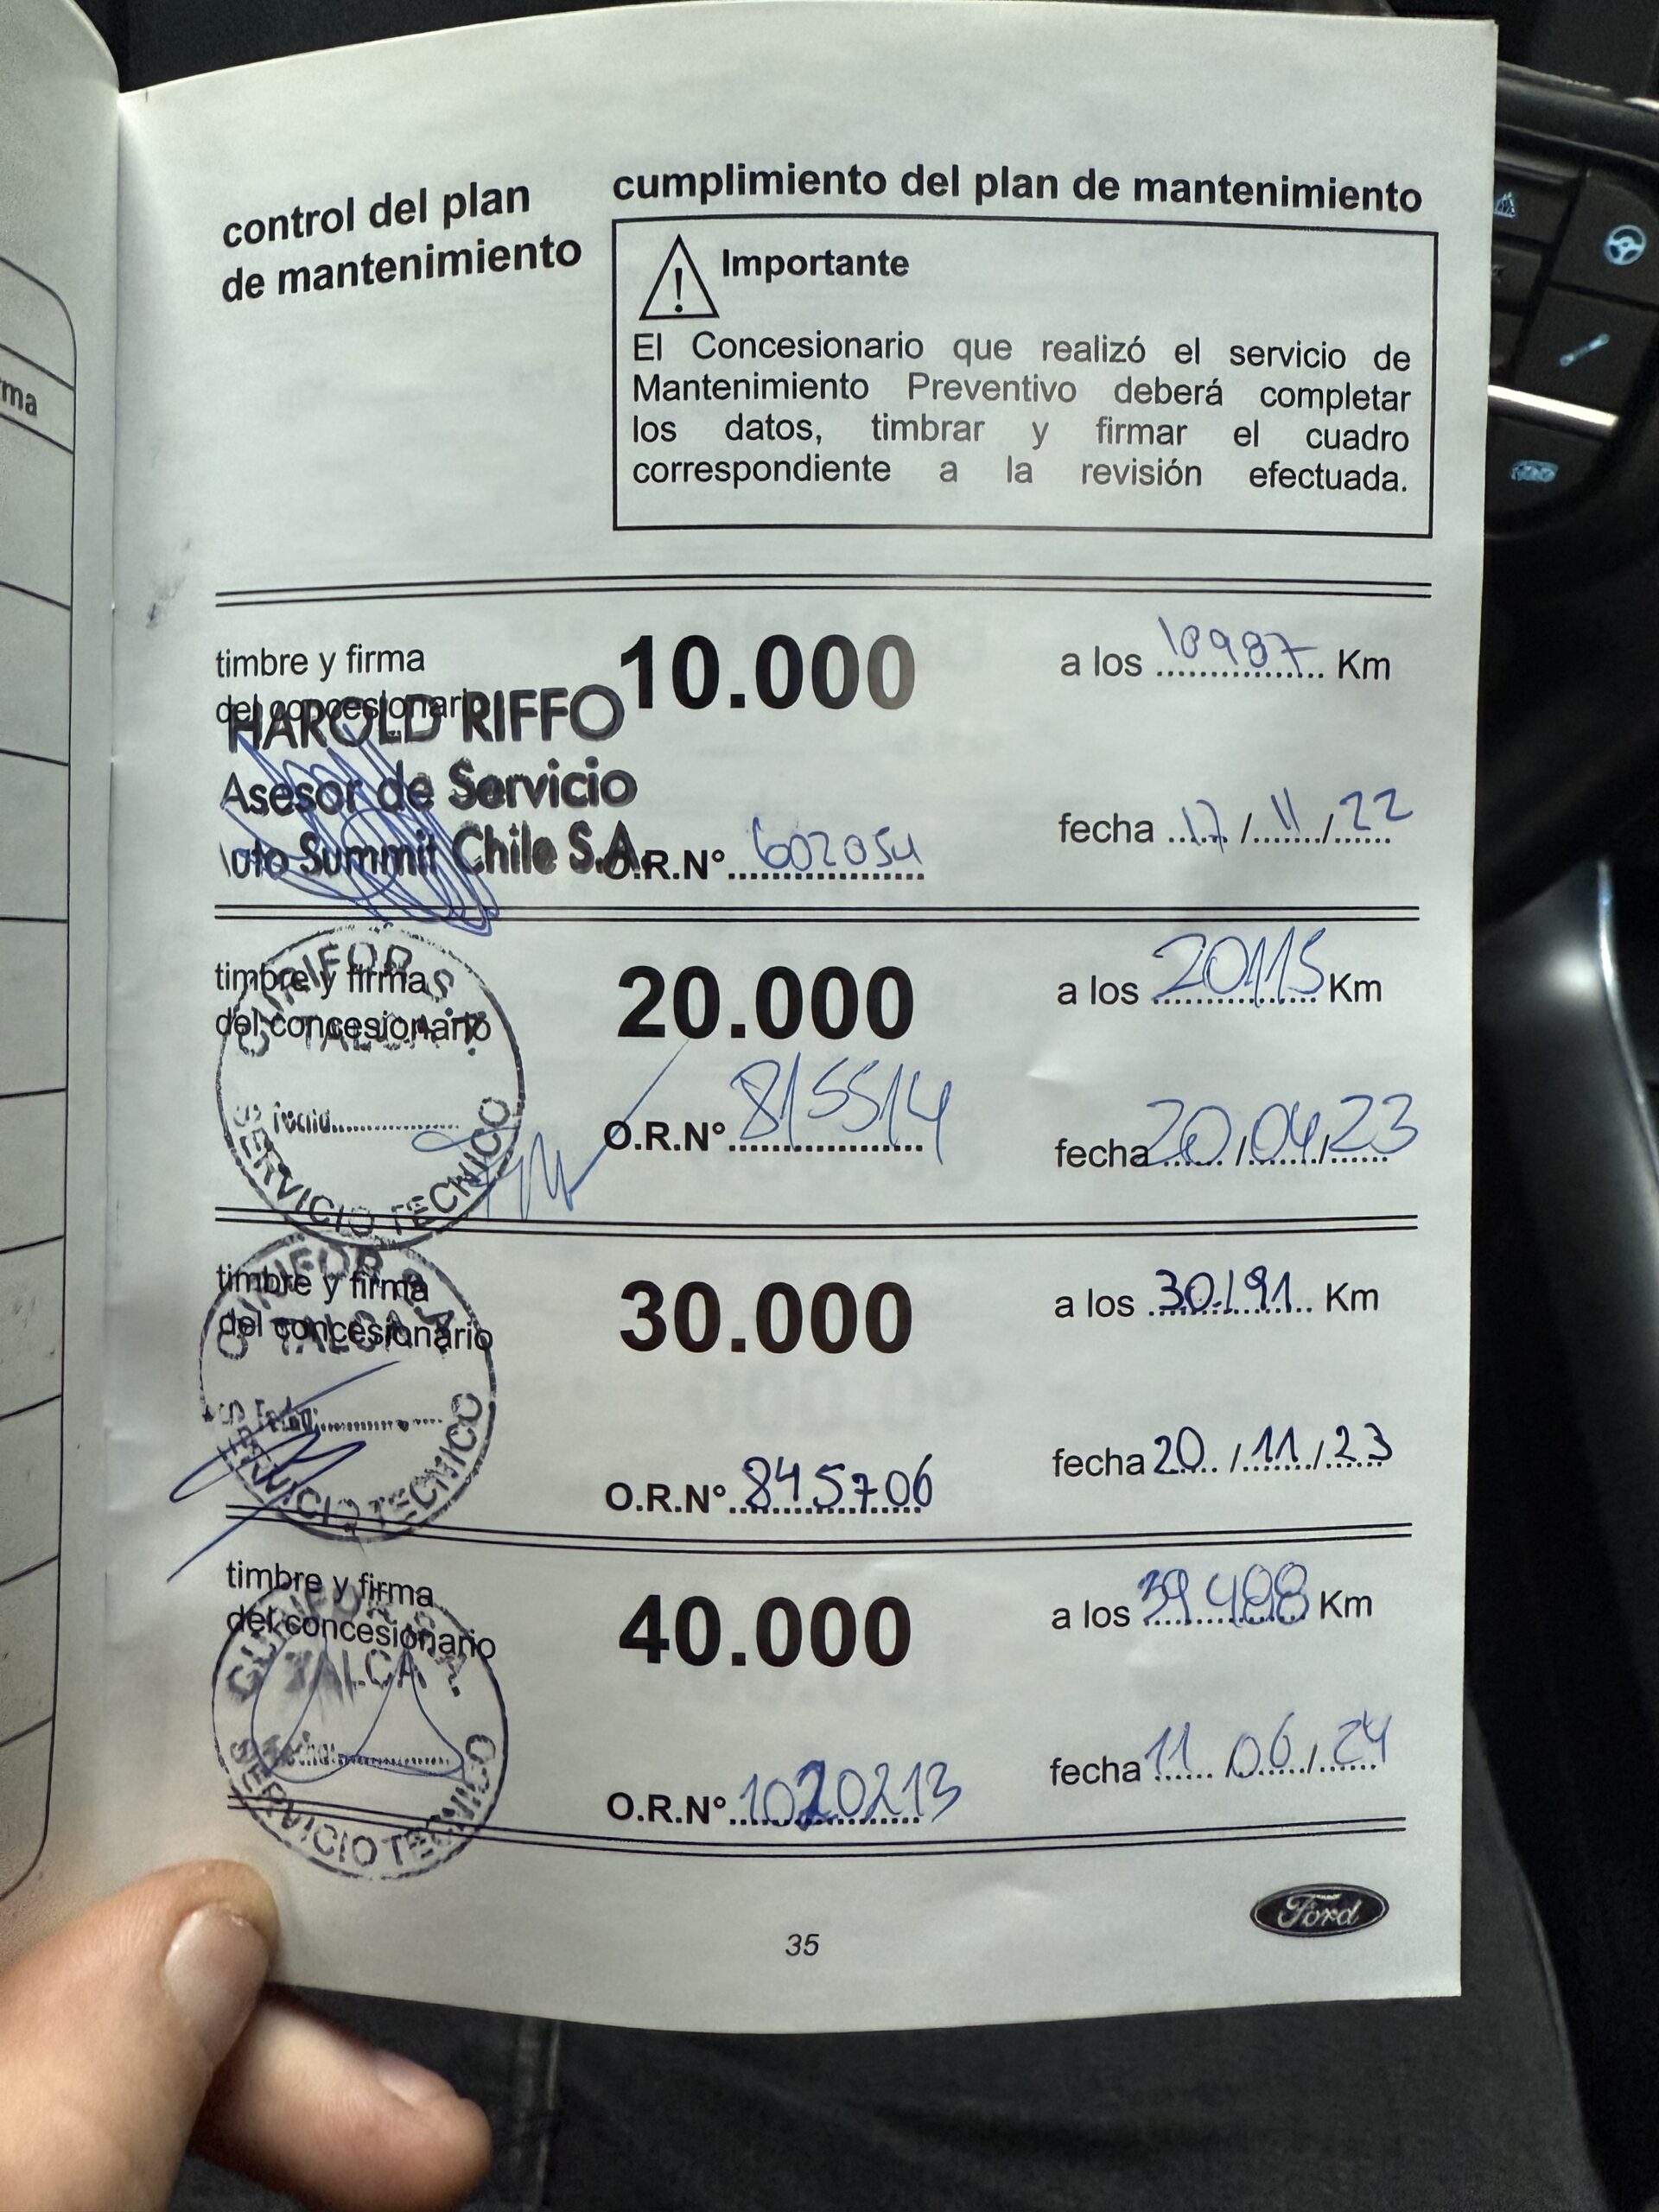 rma
control del plan
de mantenimiento
cumplimiento del plan de mantenimiento
Importante
El Concesionario que realizó el servicio de
Mantenimiento Preventivo deberá completar
los datos, timbrar y firmar el cuadro
correspondiente a la revisión efectuada.
timbre y firma
del concesionario
10.000
a los 10987 Km
HAROLD RIFFO
Asesor de Servicio
Auto Summit Chile S.A.
O.R.N° 602054
fecha 17/11/22
timbre y firma
del concesionario
TALCA
SERVICIO TECNICO
20.000
a los 20115 Km
O.R.N° 815514
fecha 20/04/23
timbre y firma
del concesionario
TALCA
Fecha:
SERVICIO TECNICO
30.000
a los 30.191 Km
O.R.N° 845706
fecha 20/11/23
timbre y firma
del concesionario
TALCA
Fecha:
SERVICIO TECNICO
40.000
a los Km
O.R.N° 1020213
fecha 11/06/24
35
Ford